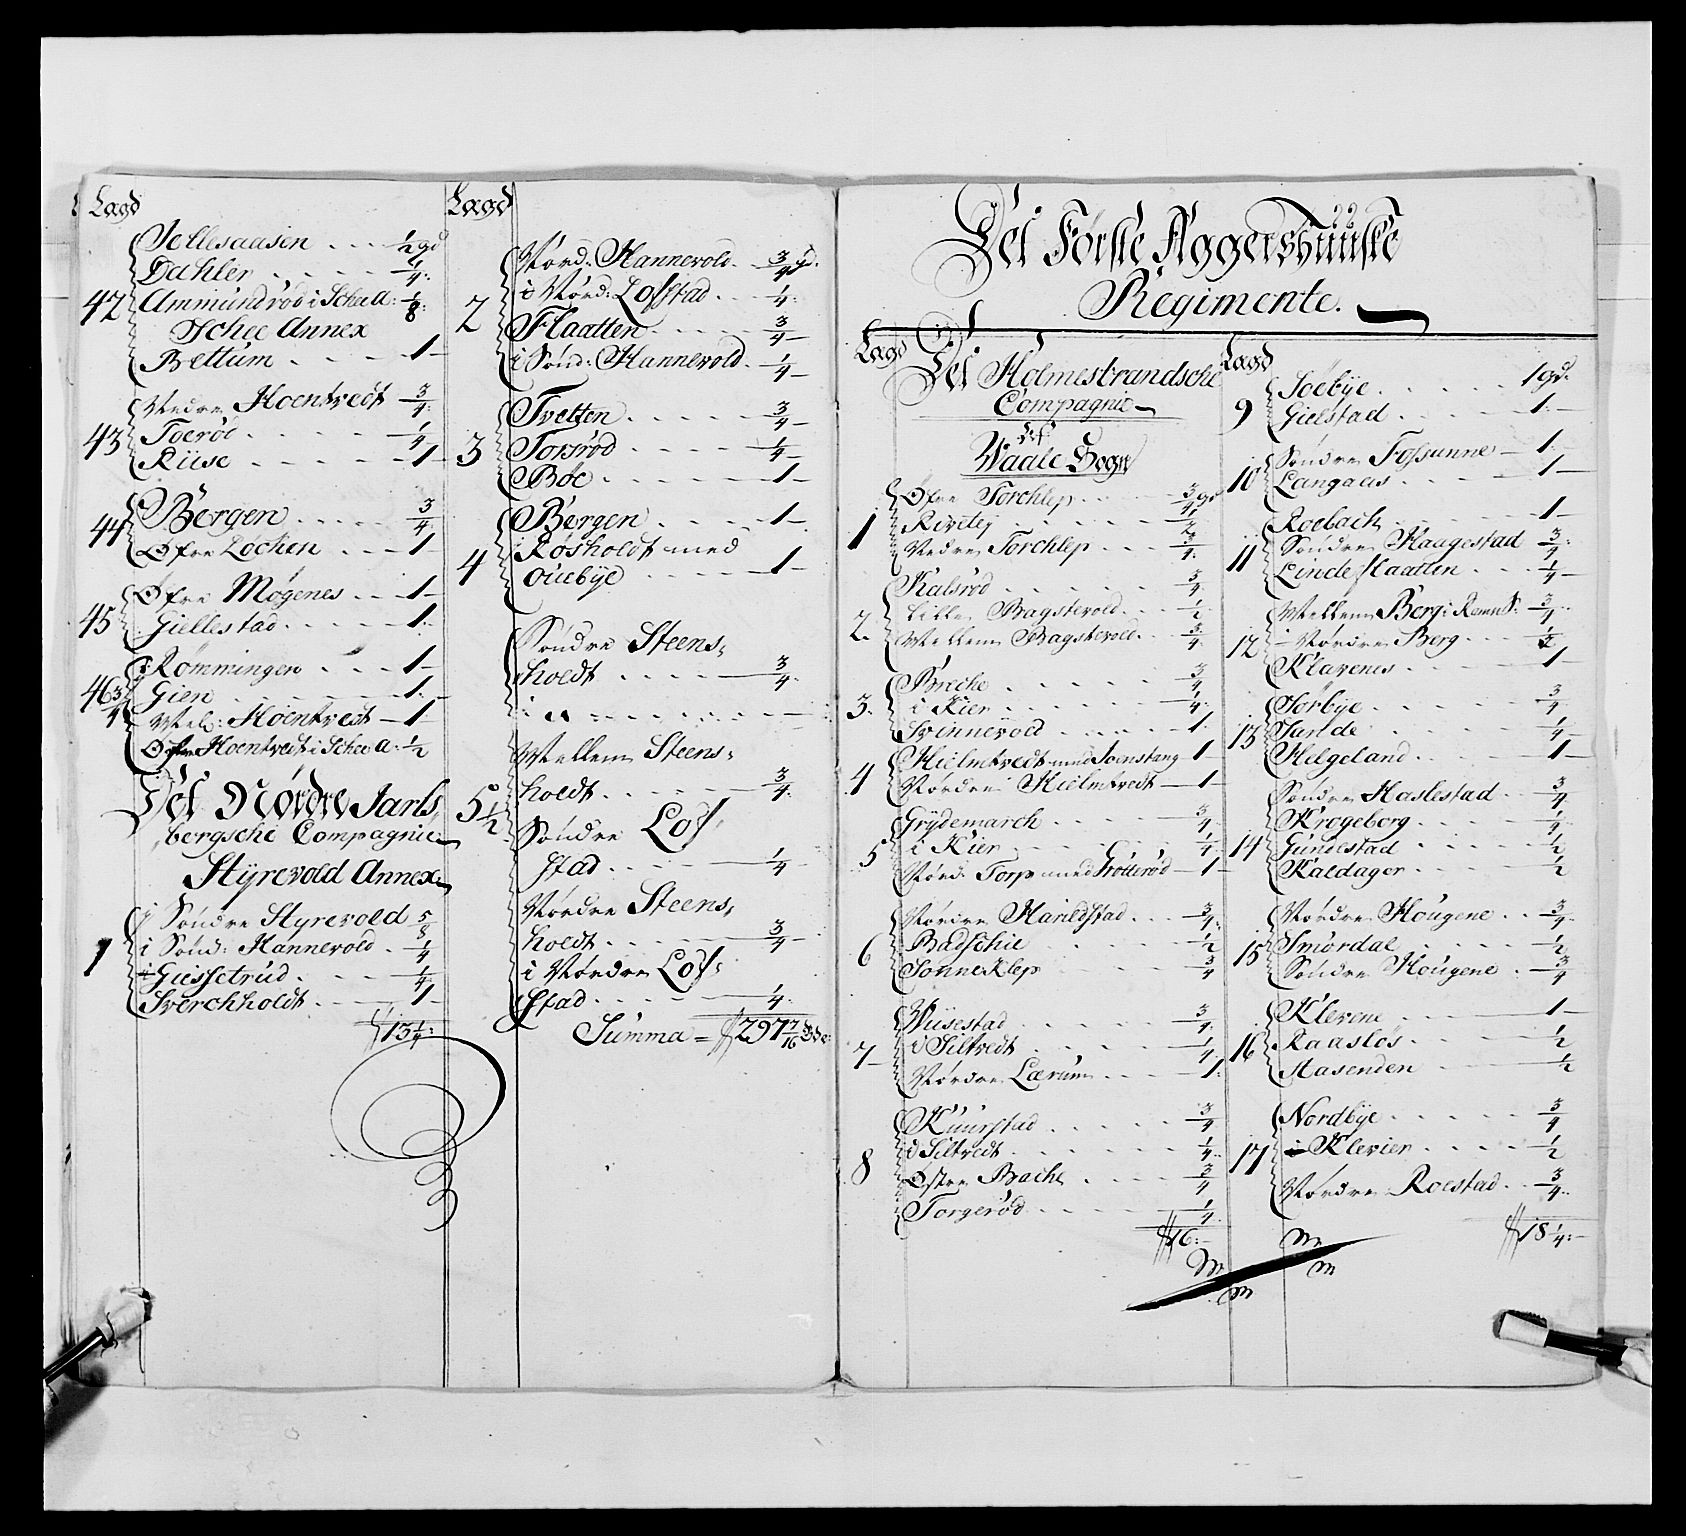 Lagd
Jellesaasen . . . ½ gd
Dahler . . . . ¼:
42 Ammundrød i Schee A: ⅛:
Schee Annex
Bettum . . . . 1 –
Nedre Hoentvedt ¾:
43 Toerød . . . . ¼
Riise . . . . 1 –
44 Bergen . . . . ¾
Øfre Løchen . . . 1
45 Øfre Møgenes . . . 1 –
Giellestad . . . . 1:
46¾ Rømmingen . . . 1 –
Gien . . . . 1:
Mel: Hoentvedt – 1
Øfre Hoentvedt i Schee A: ½
Det Nordre Jarls,
bergsche Compagnie
Styrevold Annex
1 i Søndre Styrevold ⅝
i Sønd: Hannevold . ¼
i Giessetrud . . . ¼
Sverchholdt . . . 1
13¼:
Lagd
2 Nord: Hannevold . ¾ gd.
i Nord: Lofstad . . . ¼:
Flaatten . . . . ¾ –
i Sønd: Hannevold . ¼ –
3 Tvetten . . . . ¾ –
Torsrød . . . . ¼ –
Bøe . . . . 1 –
4 Bergen . . . . 1 –
Røsholdt med
Ouebye . . . . 1 –
Søndre Steens,
holdt . . . . ¾:
5½ Mellem Steens,
holdt . . . . ¾:
Søndre Lof,
stad . . . . ¼
Nordre Steens,
holdt . . . . ¾ –
i Nordre Lof,
stad . . . . ¼:
Summa = 297 7/16
Det Første Aggershuuske
Regimente.
Lagd
Det Holmestrandsche
Compagnie
Waale Sogn
1 Øfre Torchlep . . . ¾ gd
Nedre Torchlep . . . ¾:
2. Kalsrød . . . . ¾
Lille Bagstevold . . . ½
Mellem Bagstevold . . ¾
3. Breche . . . . ¾
i Kier . . . . ¼:
Svinnevold . . . . 1:
4 Hielmtvedt med Soenstang 1 –
Nordre Hielmtvedt – 1 –
5 Grydemarch . . . . ¾
i Kier . . . . ¼
Nord: Torp med Trollerød – 1 –
6 Nordre Harildstad . . . ¾:
Badschie . . . . ½
Sonneklep . . . . ¾
7 Wiisestad . . . . ¾:
i Siltvedt . . . . ¼
Nordre Lærum . . . 1:
8 Kuurstad . . . . ¾
i Siltvedt . . . . ¼:
Østre Bache . . . . ¾
Torgerød . . . . ¼
16: –
Lagd
9 Søebye . . . . 1 gd.
Gielstad . . . . 1: –
10 Søndre Fossunne – 1 –
Langaas . . . . 1 –
11 Roebach . . . . 1 –
Søndre Haagestad ¾:
Lindeflaatten . . . ¼ –
12 Mellem Berg i Remn S: ¾
– Nordre Berg . . . ½
Klavenes . . . . 1 –
13 Sørbye . . . . ¾
Sande . . . . ¼ –
Helgeland . . . . 1 –
14 Søndre Haslestad . . ¾
Krogeborg . . . . ¼
Gundestad . . . . ½
Kaldager . . . . ½
15 Nordre Hougene . . ¾:
Smørdal . . . . ½
Søndre Hougene . . ¾
16 Klevene . . . . 1 –
Raasløs . . . . ½
Aasenden . . . . ½
17 Nordbye . . . . ¾
i Klevier . . . . ½
Nordre Roestad . . ¾:
18¼: –